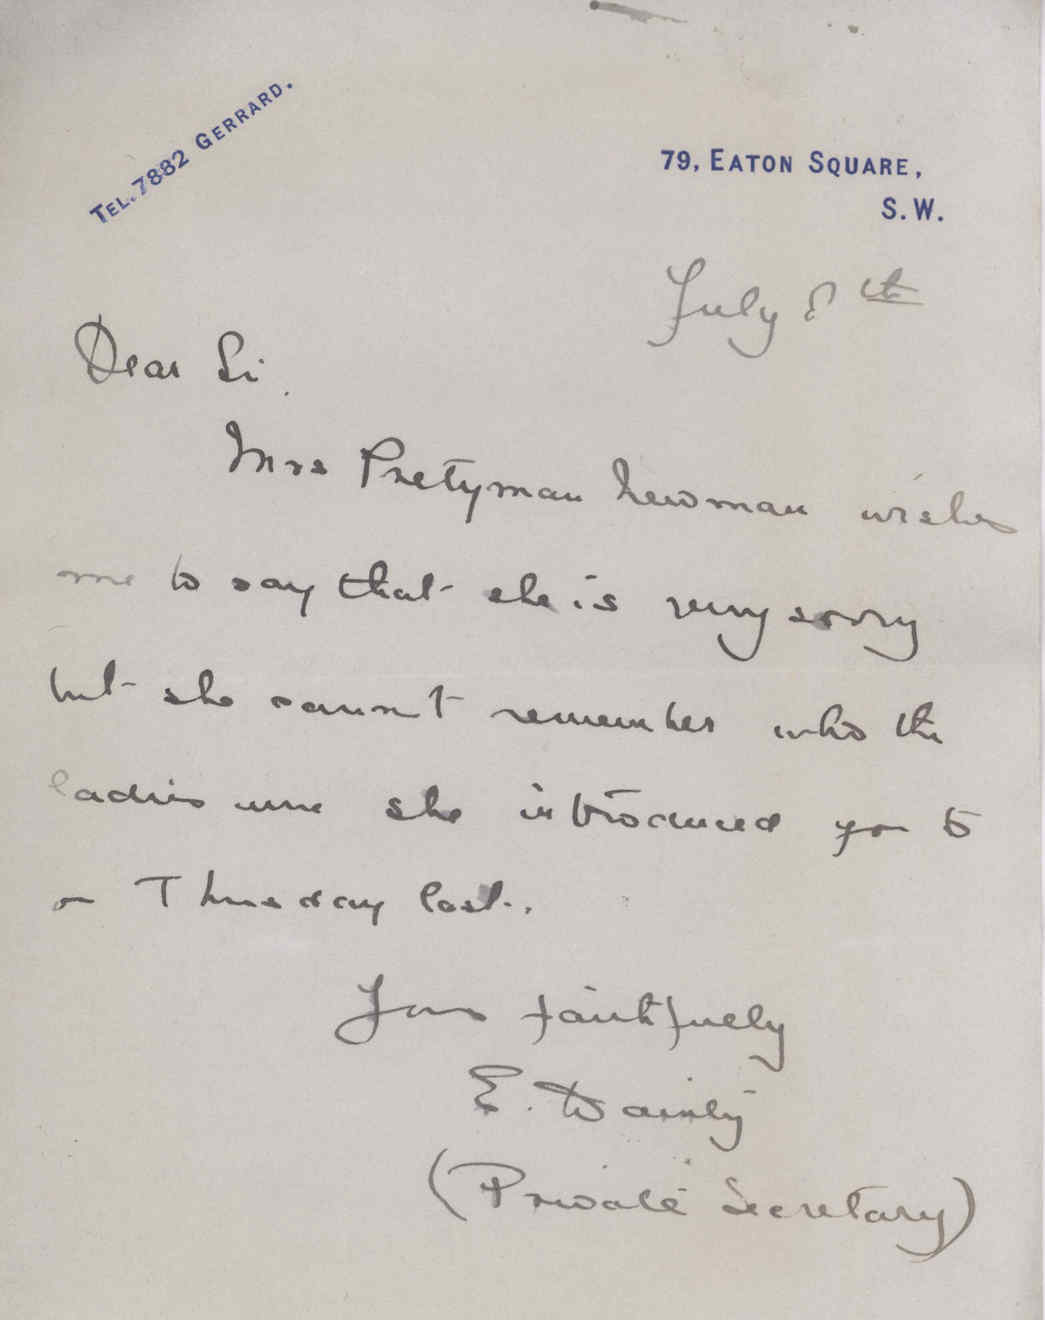 TEL. 7882 GERRARD.
79, EATON SQUARE,
S.W.
July 8th
Dear Sir.
Mrs Pretyman Newman wishes
me to say that she is very sorry
but she cannot remember who the
ladies were she introduced you to
on Thursday last.
Yours faithfully
E.
(Private Secretary)